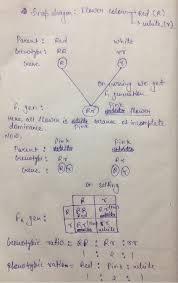 Snapdragon: Flower colour → Red (R)
→ white (r)
Parent: Red white
Genotype: RR rr
Gamete: R r
On crossing we get
F1 generation
F1 gen: Rr Pink flower
Here all flower is pink because of incomplete
dominance.
Now,
Parent: Pink Pink
Genotype: Rr Rr
Gamete: R r R r
on selfing
F2 gen:
R r
R RR Red Rr Pink
r Rr Pink rr white
Genotypic ratio = RR : Rr : rr
1 : 2 : 1
Phenotypic ratio = Red : Pink : white
1 : 2 : 1